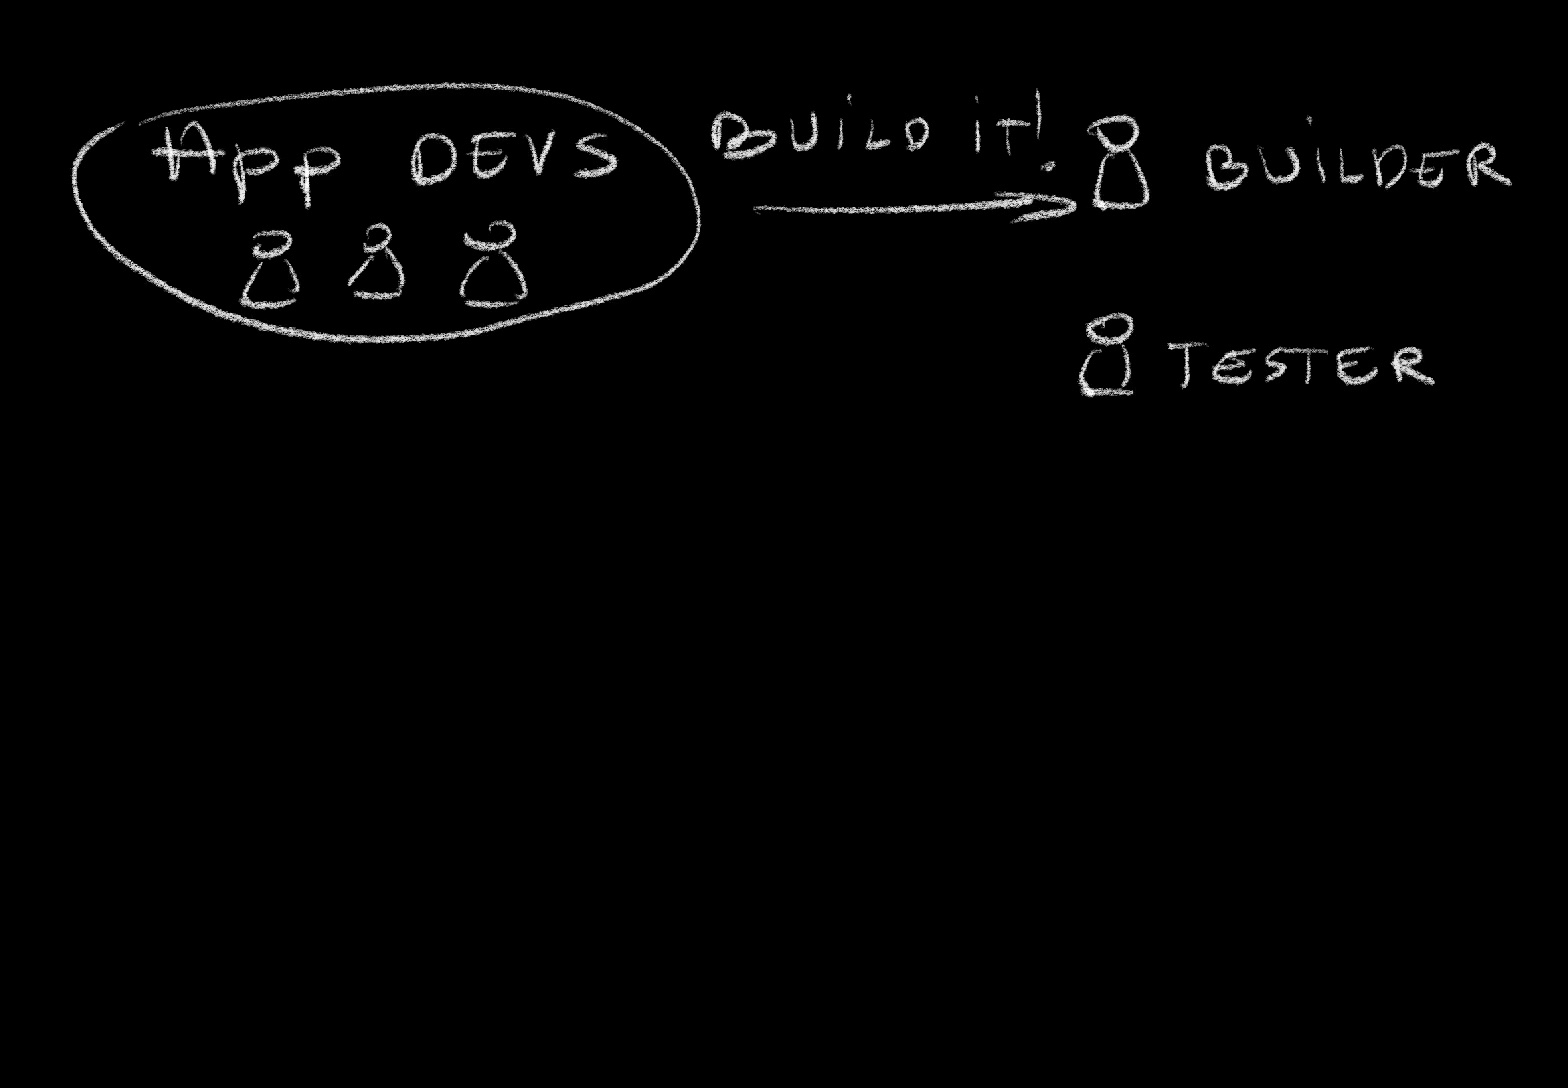 App DEVS
BUiLD iT!
BUiLDER
TESTER